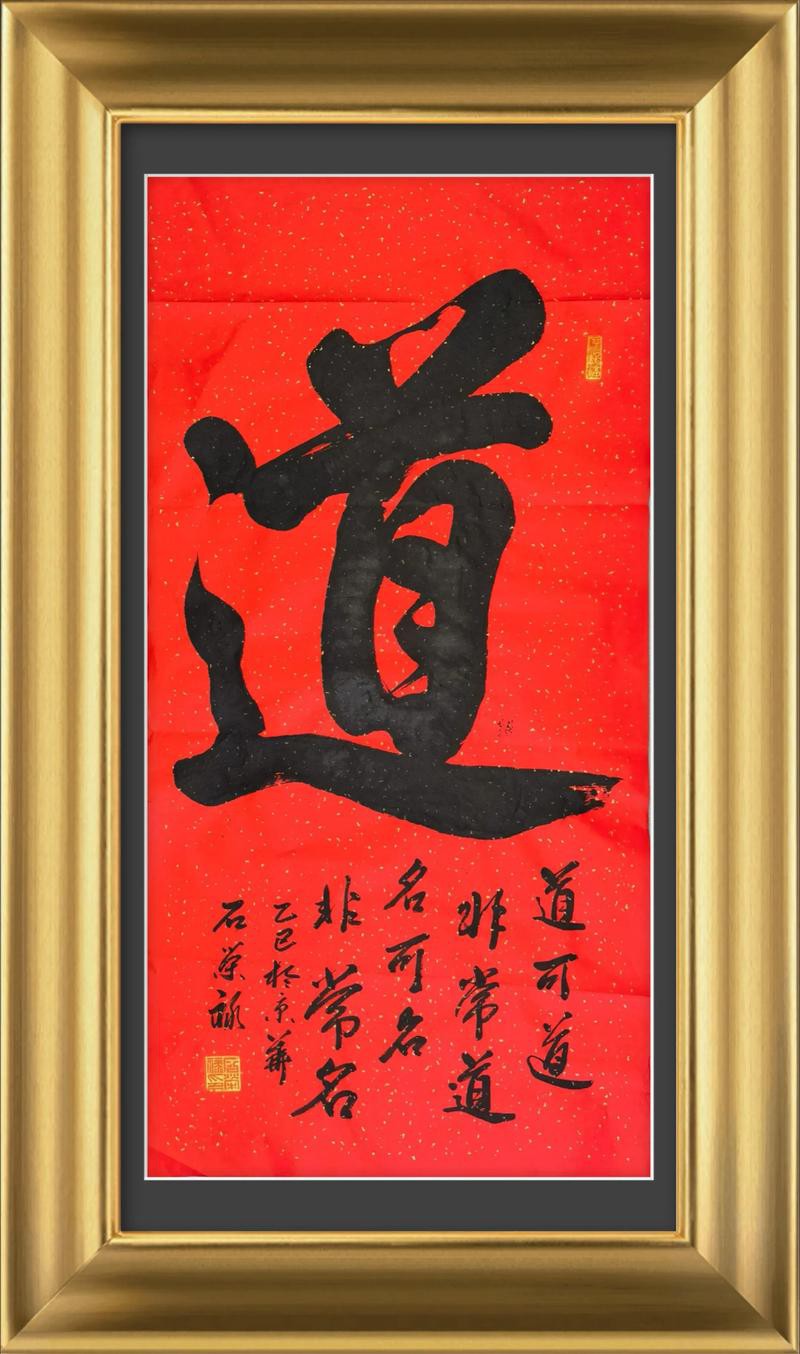 道
道可道
非常道
名可名
非常名
乙巳於京華
石榮祿